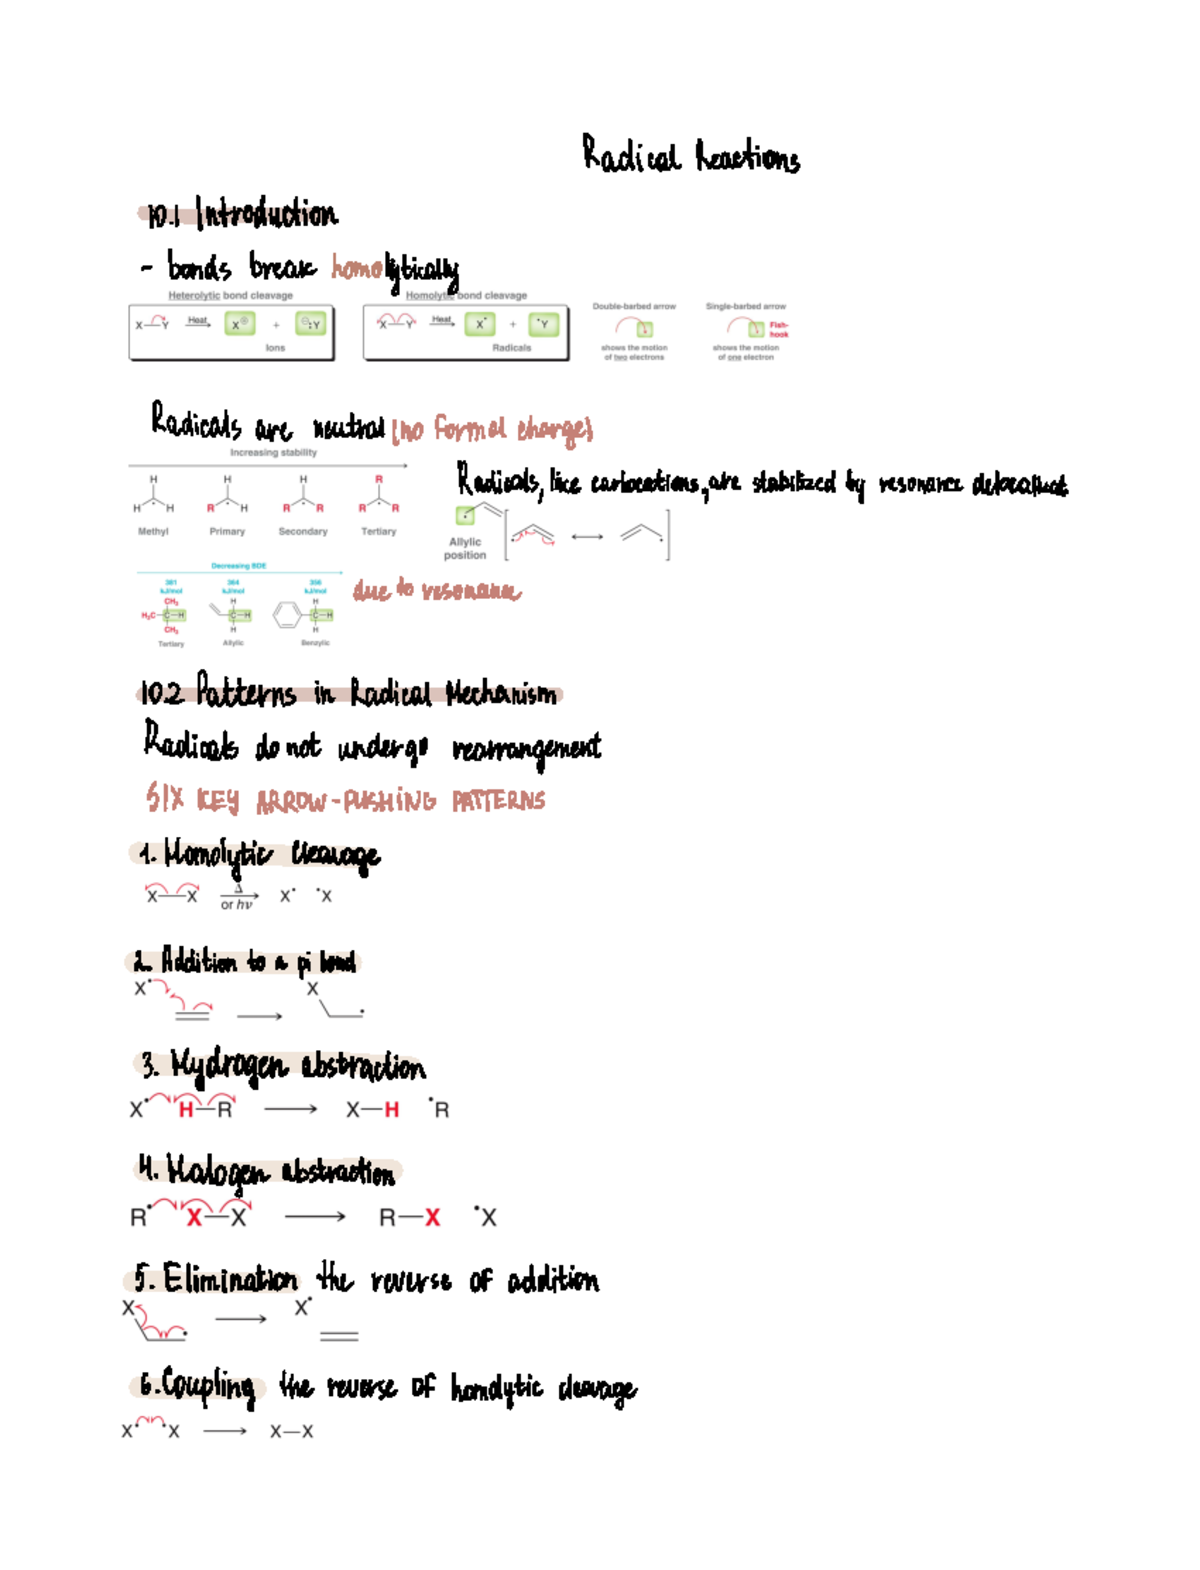 Radical Reactions
10.1 Introduction
- bonds break homolytically
Heterolytic bond cleavage
X—Y Heat X⊕ + ⊖:Y
Ions
Homolytic bond cleavage
X—Y Heat X• + •Y
Radicals
Double-barbed arrow
shows the motion
of two electrons
Single-barbed arrow
Fish-
hook
shows the motion
of one electron
Radicals are neutral (no formal charge)
Increasing stability
H H H R
H H R H R R R R
Methyl Primary Secondary Tertiary
Radicals, like carbocations, are stabilized by resonance
Allylic
position
Decreasing BDE
381 364 356
kJ/mol kJ/mol kJ/mol
CH₃ H H
H₃C—C—H C—H C—H
CH₃ H H
Tertiary Allylic Benzylic
due to resonance
10.2 Patterns in Radical Mechanism
Radicals do not undergo rearrangement
SIX KEY ARROW-PUSHING PATTERNS
1. Homolytic Cleavage
X—X Δ or hν X• •X
2. Addition to a pi bond
X• X •
3. Hydrogen abstraction
X• H—R X—H •R
4. Halogen abstraction
R• X—X R—X •X
5. Elimination the reverse of addition
X • X•
6. Coupling the reverse of homolytic cleavage
X• •X X—X